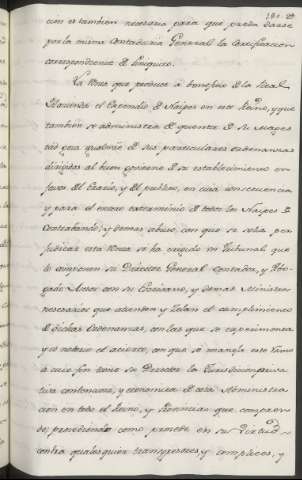 cion es tambien necesaria para que pueda darse
por la misma Contaduria General la Certificacion
correspondiente de finiquito.
La Renta que produce a beneficio de la Real
Hacienda el Expendio de Naipes en este Reino, y que
tambien se administra de quenta de su Mages
tad, goza igualmte de sus particulares ordenanzas
dirigidas al buen govierno de su establecimiento en
favor del Erario, y del publico, en cuia consecuencia
y para el exterminio de todos los Naipes de
Contrabando, y demas abusos con que se solia per
judicar esta Renta se ha erigido un Tribunal que
lo componen su Director General Contador, y Abo
gado Asesor con su Escrivano, y demas Ministros
necesarios que atienden y Zelan el cumplimiento
de dichas Ordenanzas, con las que se experimenta
y es notorio el acierto, con que se maneja este Ramo
a cuio fin tiene su Director la Jurisdiccion priva
tiva contenciosa, y economica de esta Administra
cion en todo el Reino, y Provincias que compren
de, procediendo como procede en su Virtud
contra qualesquier transgresores, y complices, y